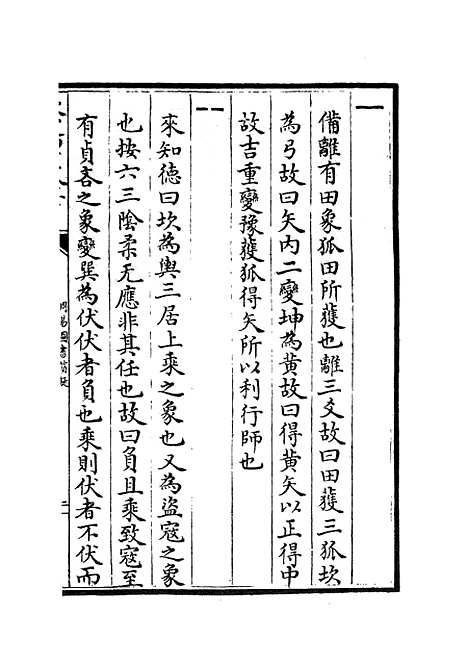 ⚊
備離有田象狐田所獲也離三爻故曰田獲三狐坎
為弓故曰矢内二變坤為黄故曰得黄矢以正得中
故吉重變豫獲狐得矢所以利行師也
⚋
來知德曰坎為輿三居上乘之象也又為盜寇之象
也按六三陰柔无應非其任也故曰負且乘致寇至
有貞吝之象變巽為伏伏者負也乘則伏者不伏而
周易圖書質疑